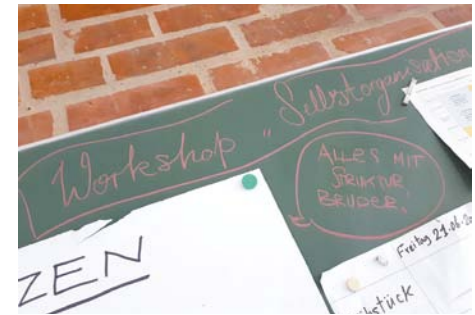 Workshop „Selbstorganisation
ALLES MIT
STRUKTUR
BRUDER!
ZEN
Freitag 21.06.20
stück